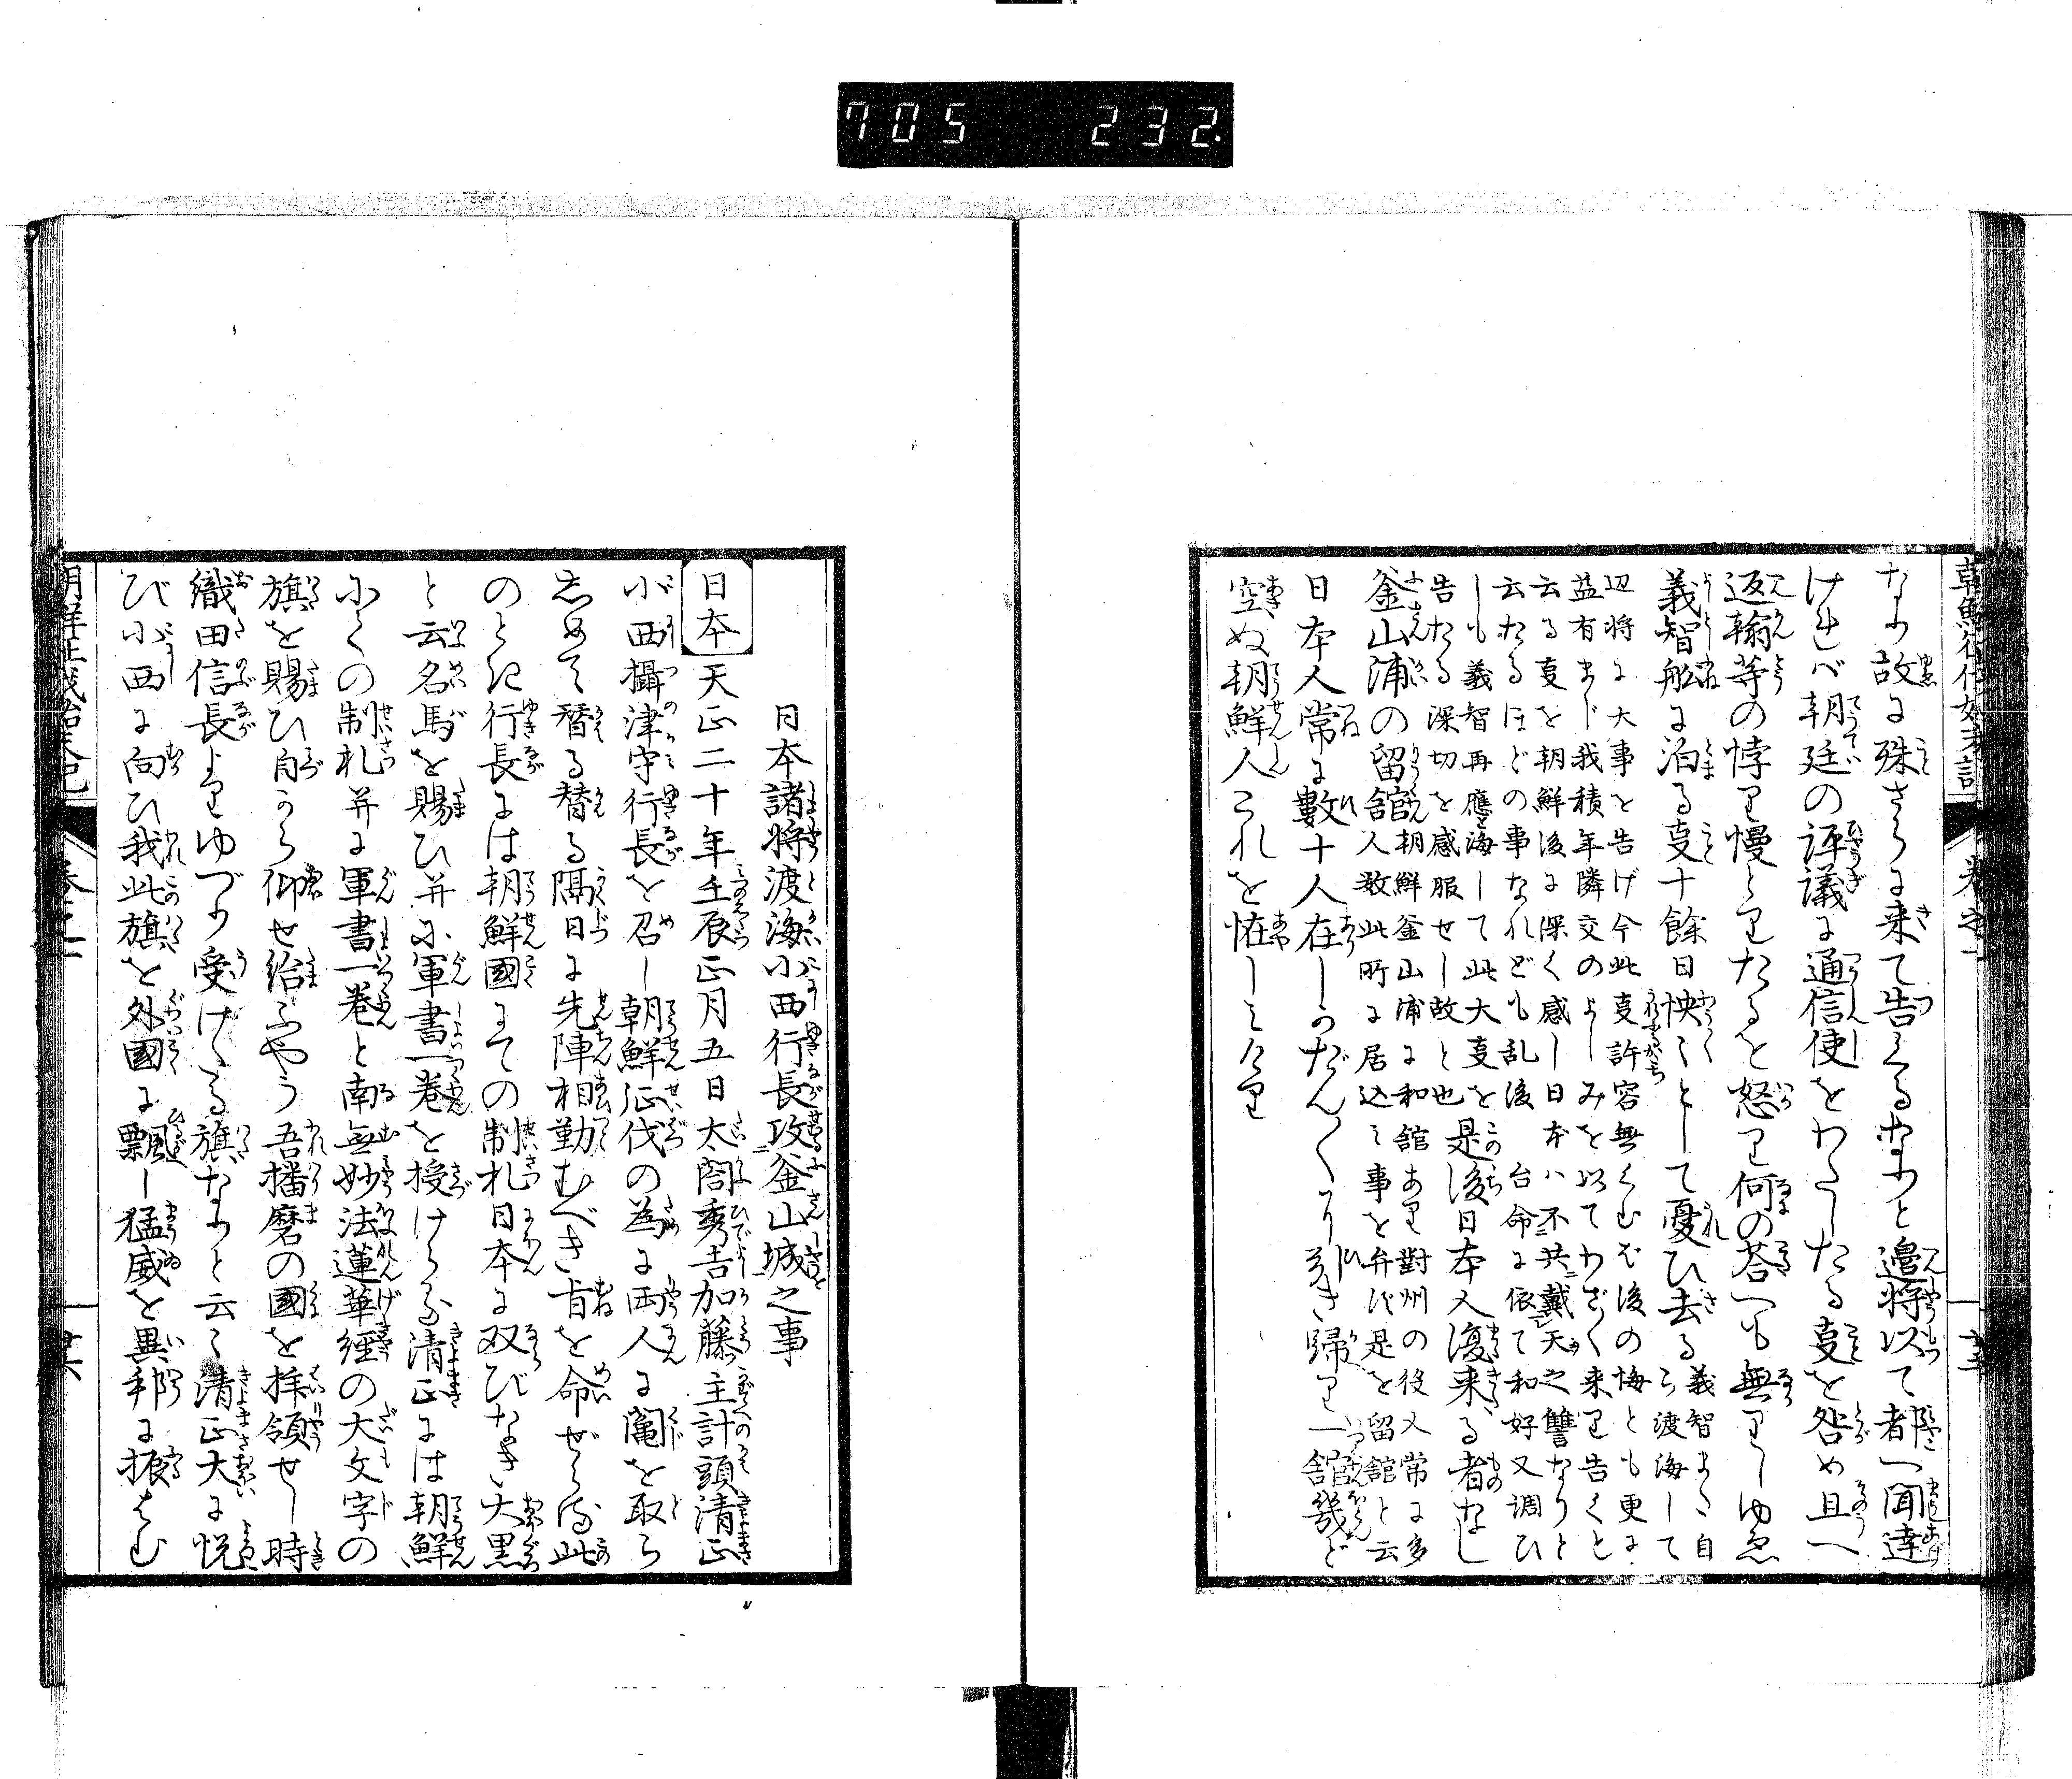 705 232.
なり故に殊さらに来て告くるなりと邊将以て都へ聞達
けれバ朝廷の評議に通信使をわたしたる叓を咎め且へ
返翰等の悖り慢とりたるを怒り何の荅へも無りしゆゑ
義智舩に泊る叓十餘日怏〻として憂ひ去る
義智まさ自
ら渡海して
辺将に大事を告げ今此叓許容無くむば後の悔とも更に
益有まじ我積年隣交のよしみを以てわざ〱来り告くと
云る叓を朝鮮後に深く感し日本ハ不共戴天之讐なりと
云たるほどの事なれども乱後台命に依て和好又調ひ
しも義智再應渡海して此大叓を
告たる深切を感服せし故と也
是後日本人復来る者なし
釜山浦の留舘
朝鮮釜山浦に和舘あり對州の役人常に多
人数此所に居込ミ事を弁ず是を留舘と云
日本人常に數十人在しのだん〱引き歸り一舘幾ど
空ぬ朝鮮人これを恠しミけり
日本諸将渡海小西行長攻釜山城之事
日本 天正二十年壬辰正月五日太閤秀吉加藤主計頭清正
小西攝津守行長を召し朝鮮征伐の為に両人に鬮を取ら
しめて替る替る隔日に先陣相勤むべき旨を命ぜらる此
のとき行長には朝鮮國まての制札日本に双びなき大黒
と云名馬を賜ひ并に軍書一巻を授けらる清正には朝鮮
小くの制札并に軍書一巻と南無妙法蓮華經の大文字の
旗を賜ひ自から仰せ給ふやう吾播磨の國を拝領せし時
織田信長よりゆづり受けたる旗なりと云〻清正大に悦
び小西に向ひ我此旗を外國に飄し猛威を異邦に振はむ